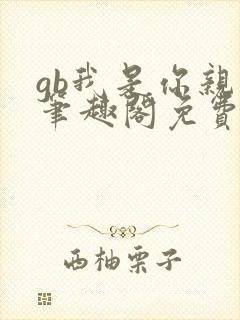 gb我是你亲
笔趣阁免费
西柚栗子